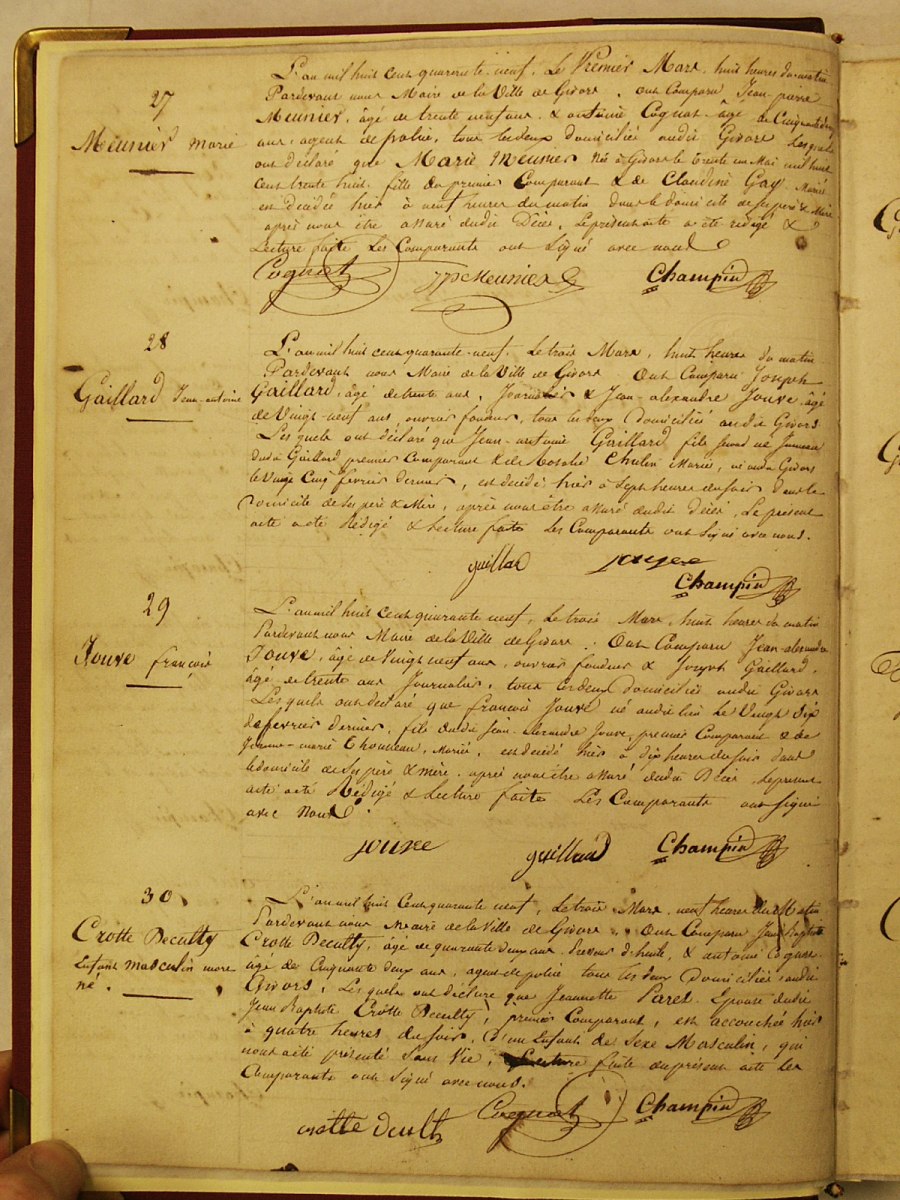 27
Meunier Marie
L'an mil huit cent quarante-neuf, Le Premier Mars, huit heures du matin
Pardevant nous Maire de la Ville de Givors. Ont Comparu Jean-pierre
Meunier, âgé de trente neuf ans, & antoine Cognat âgé de Cinquante deux
ans, agent de police, tous les deux domiciliés audit Givors Lesquels
ont déclaré que Marie Meunier Née à Givors le trente un Mai mil huit
Cent trente huit, fille du premier Comparant & de Claudine Gay, Mariés
est décédée hier à neuf heures du matin dans le domicile de ses père & Mère
après nous être assuré dudit Décès, Le présent acte a été rédigé &
Lecture faite Les Comparants ont Signé avec nous
Cognat JPMeunier Champin
28
Gaillard Jean-antoine
L'an mil huit cent quarante-neuf, Le trois Mars, huit heures du matin
Pardevant nous Maire de la Ville de Givors Ont Comparu Joseph
Gaillard, âgé de trente ans, Journalier & Jean-alexandre Jouve, âgé
de Vingt-neuf ans, ouvrier fondeur, tous les deux Domiciliés audit Givors
Lesquels ont déclaré que Jean-antoine Gaillard, fils Jumeau
dudit Gaillard, premier Comparant & de Rosalie Mariés, né audit Givors
le Vingt Cinq février dernier, est décédé hier à Sept heures du soir dans le
domicile de ses père & Mère, après nous être assuré dudit décès, Le présent
acte a été Rédigé & Lecture faite Les Comparants ont Signé avec nous.
guillar jouve
Champin
29
Jouve françois
L'an mil huit Cent quarante neuf, Le trois Mars, huit heures du matin
Pardevant nous Maire de la Ville de Givors: Ont Comparu Jean-alexandre
Jouve, âgé de Vingt neuf ans, ouvrier fondeur & Joseph Gaillard,
âgé de trente ans Journalier, tous les deux Domiciliés audit Givors
Lesquels ont déclaré que françois Jouve né audit lieu le Vingt Six
de février dernier, fils dudit Jean-alexandre Jouve, premier Comparant & de
Jeanne-marie Mariés, est décédé hier à dix heures du soir dans
le domicile de ses père & mère, après nous être assuré dudit Décès, Le présent
acte a été Rédigé & Lecture faite Les Comparants ont Signé
avec Nous.
jouve guillard Champin
30
Crotte Decully
Enfant masculin mort
né.
L'an mil huit Cent quarante neuf, Le trois Mars, neuf heures du Matin
Pardevant nous Maire de la Ville de Givors. Ont Comparu Jean Baptiste
Crotte Decully, âgé de quarante deux ans, & antoine Cognat
âgé de Cinquante deux ans, agent de police tous les deux Domiciliés audit
Givors, Lesquels ont déclaré que Jeannette Paret Epouse dudit
Jean Baptiste Crotte Decully, premier Comparant, est accouchée hier
à quatre heures du soir, d'un Enfant de Sexe Masculin, qui
nous a été présenté Sans Vie, Lecture faite du présent acte les
Comparants ont Signé avec nous.
crotte Cognat Champin